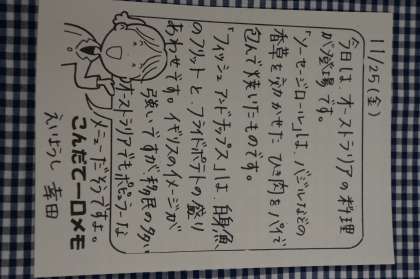 11/25(金)
今日は、オーストラリアの料理
が登場です。
「ソーセージロール」は、バジルなどの
香草を効かせた ひき肉をパイで
包んで焼いたものです。
「フィッシュアンドチップス」は、白身魚
のフリットと、フライドポテトの盛り
あわせです。イギリスのイメージが
強いですが、移民の多い
オーストラリアでもポピュラーな
メニューだそうですよ。
こんだて一口メモ
えいようし 幸田